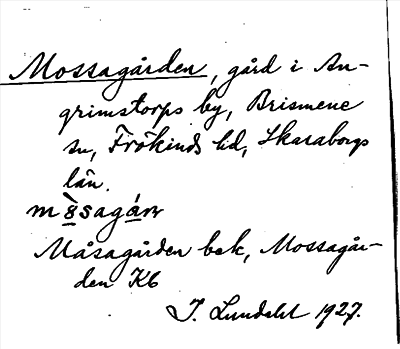 Mossagården, gård i An-
grimstorps by, Brismene
sn, Frökinds hd, Skaraborgs
län.
Måsagården bek, Mossagår-
den Kb
J. Lundahl 1927.